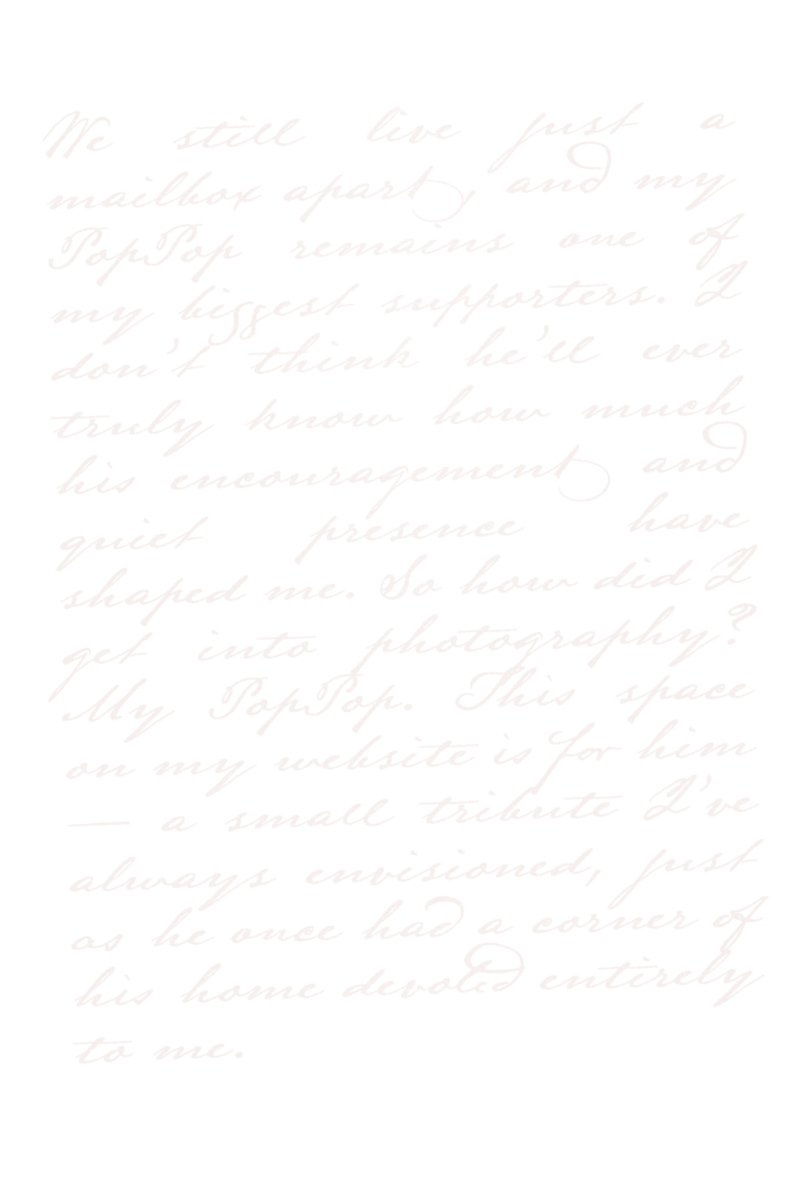 We still live just a
mailbox apart, and my
PopPop remains one of
my biggest supporters. I
don't think he'll ever
truly know how much
his encouragement and
quiet presence have
shaped me. So how did I
get into photography?
My PopPop. This space
on my website is for him
— a small tribute I've
always envisioned, just
as he once had a corner of
his home devoted entirely
to me.